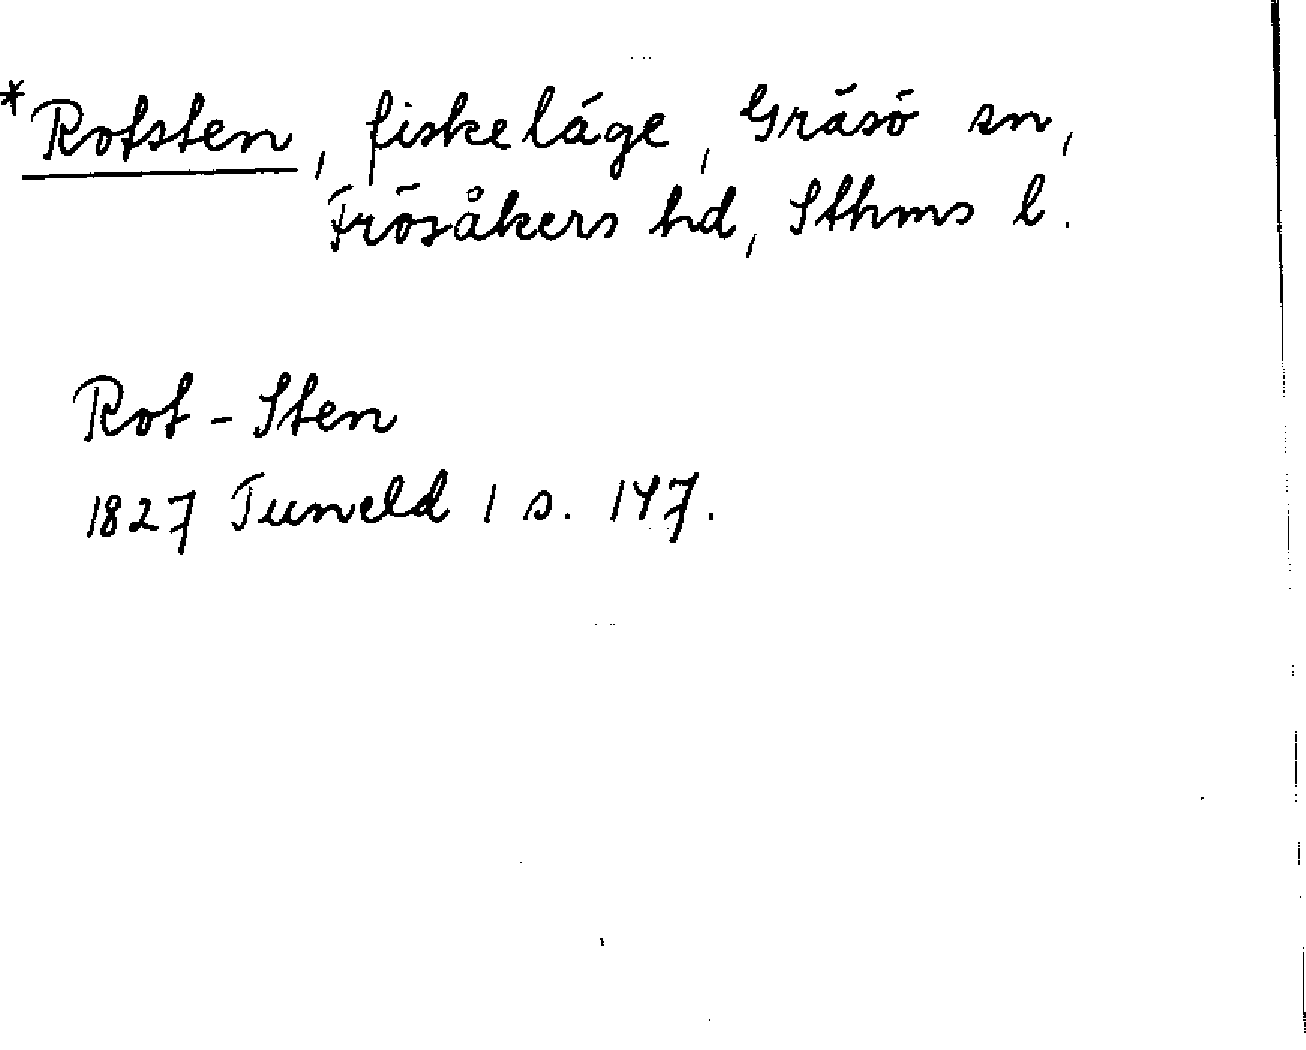 *Rotsten, fiskeläge, Gräsö sn,
Frösåkers hd, Sthms l.
Rot-Sten
1827 Tuneld 1 s. 147.